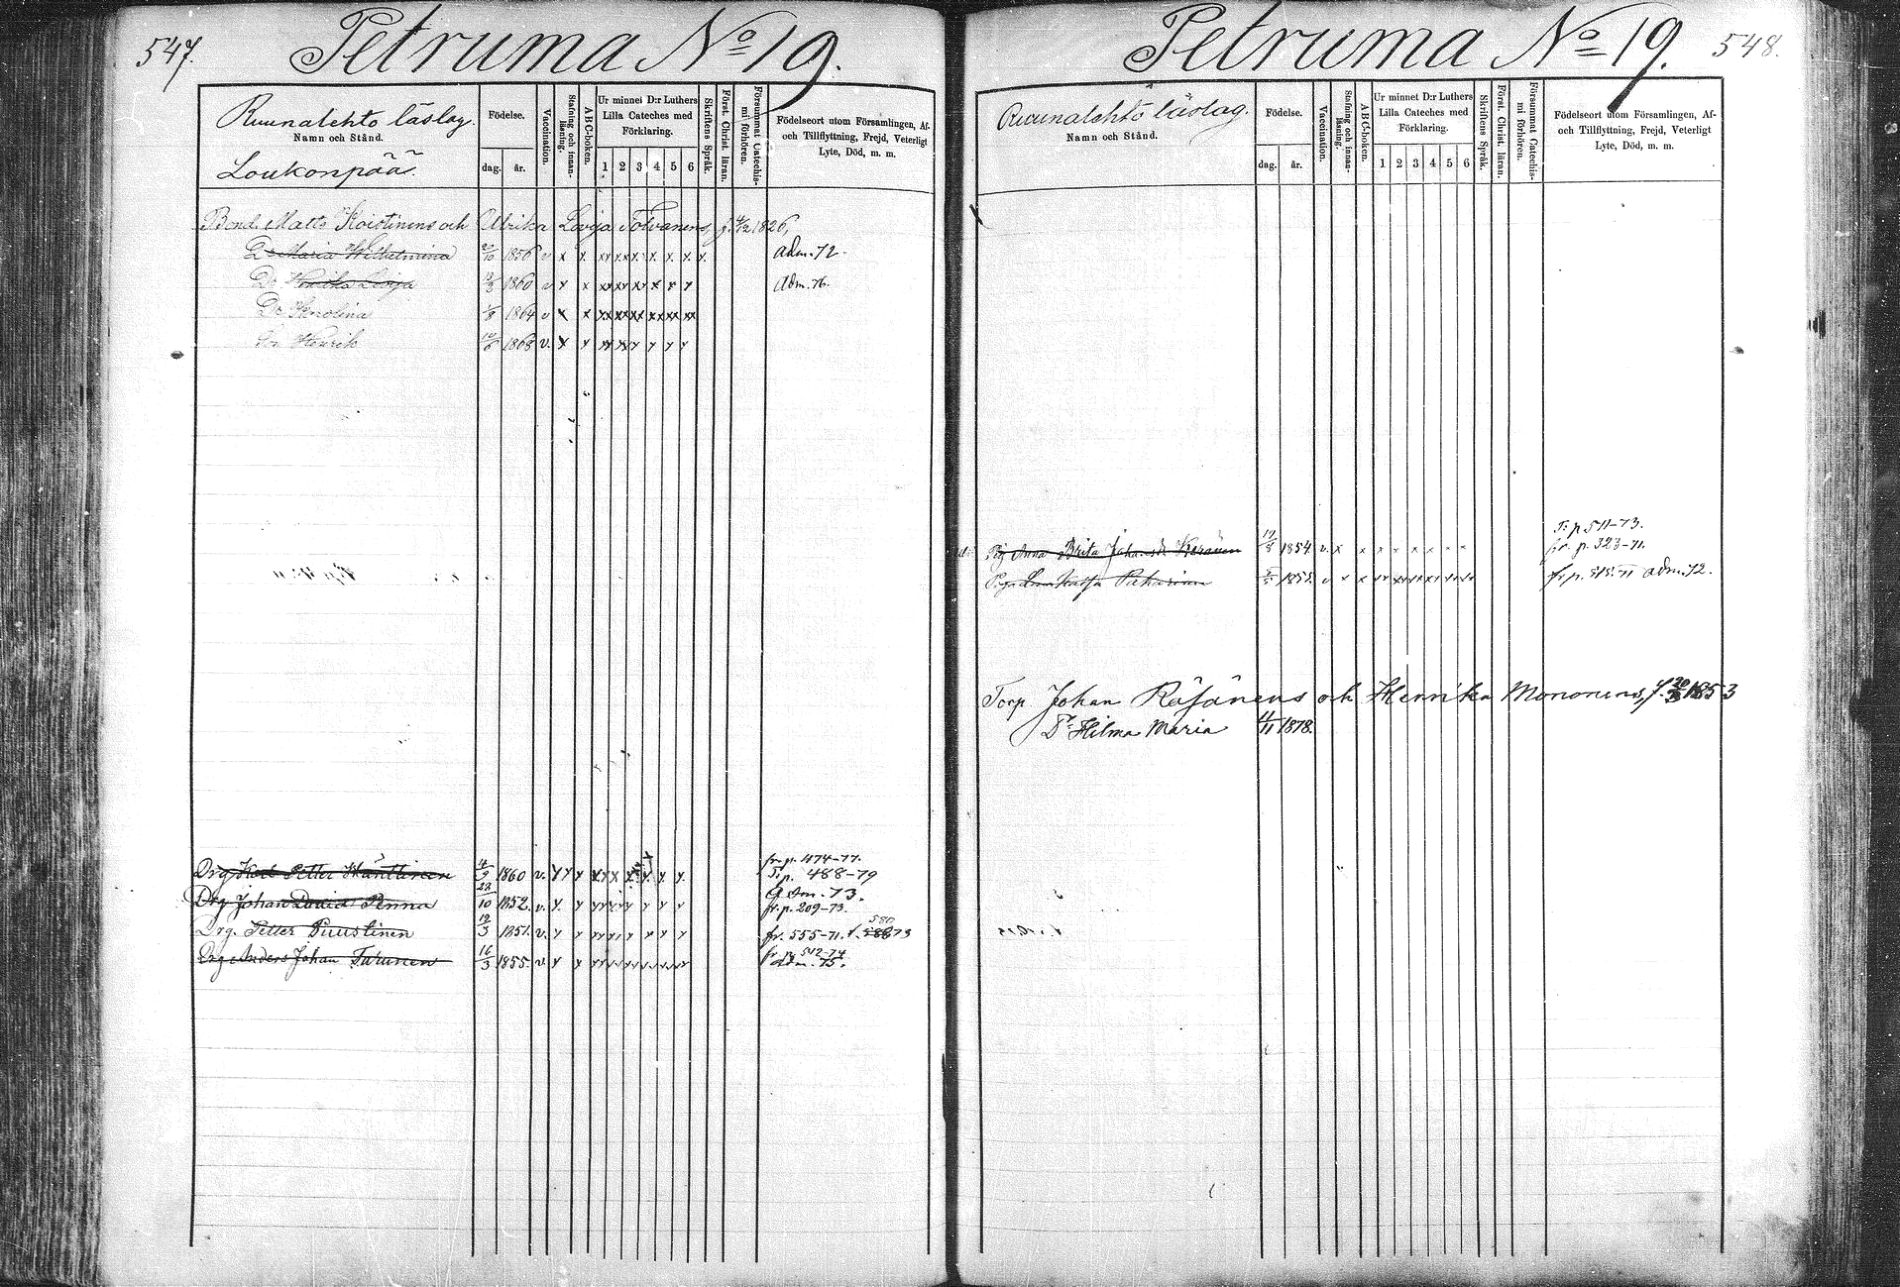 547.
Petruma No 19.
Ruunalehto läslag.
Namn och Stånd.
Loukonpää.
Födelse.
dag. år.
Vaccination.
Stafning och innan-läsning.
ABC-boken.
Ur minnet D:r Luthers
Lilla Cateches med
Förklaring.
1 2 3 4 5 6
Skriftens Språk.
Först. Christ. läran.
Försummat Catechis-mi förhören.
Födelseort utom Församlingen, Af-
och Tillflyttning, Frejd, Veterligt
Lyte, Död, m. m.
Bond. Matts Koistinens och Ulrika Lovisa Tolvanens, f. 4/2 1826,
Dr Maria Wilhelmina 2/10 1856 v x x xx xx x x x x x adm. 72.
Dr Lovisa 1860 v x x xx xx xx x x x Adm. 76.
Dr Karolina 1/8 1864 v x x xx xx xx xx xx xx
So. Henrik 10/6 1868 v. x x xx xx x x x x
Drg Petter Känttinen 4/9 1860 v. fr. p. 474-77.
T. p. 488-79
Drg Johan David Pinna 28/10 1852. v. Adm. 73.
fr. p. 209-73.
Drg. Petter Puustinen 19/3 1851. v. fr. 555-71. t. 580 73
Drg Anders Johan Turunen 16/3 1855. v. fr. p. 542-74
adm. 75.
Petruma No 19.
548.
Ruunalehto läslag.
Namn och Stånd.
Födelse.
dag. år.
Vaccination.
Stafning och innan-läsning.
ABC-boken.
Ur minnet D:r Luthers
Lilla Cateches med
Förklaring.
1 2 3 4 5 6
Skriftens Språk.
Först. Christ. läran.
Försummat Catechis-mi förhören.
Födelseort utom Församlingen, Af-
och Tillflyttning, Frejd, Veterligt
Lyte, Död, m. m.
T: p 511-73.
Pig Anna Brita Johansdr Keränen 19/8 1854. v. x x x x x x x x fr. p. 323-71.
Piga Kaisa 1855. v fr p. adm. 72.
Torp Johan Räsänens och Henrika Mononens, f. 1853
Dr Hilma Maria 11/11 1878.